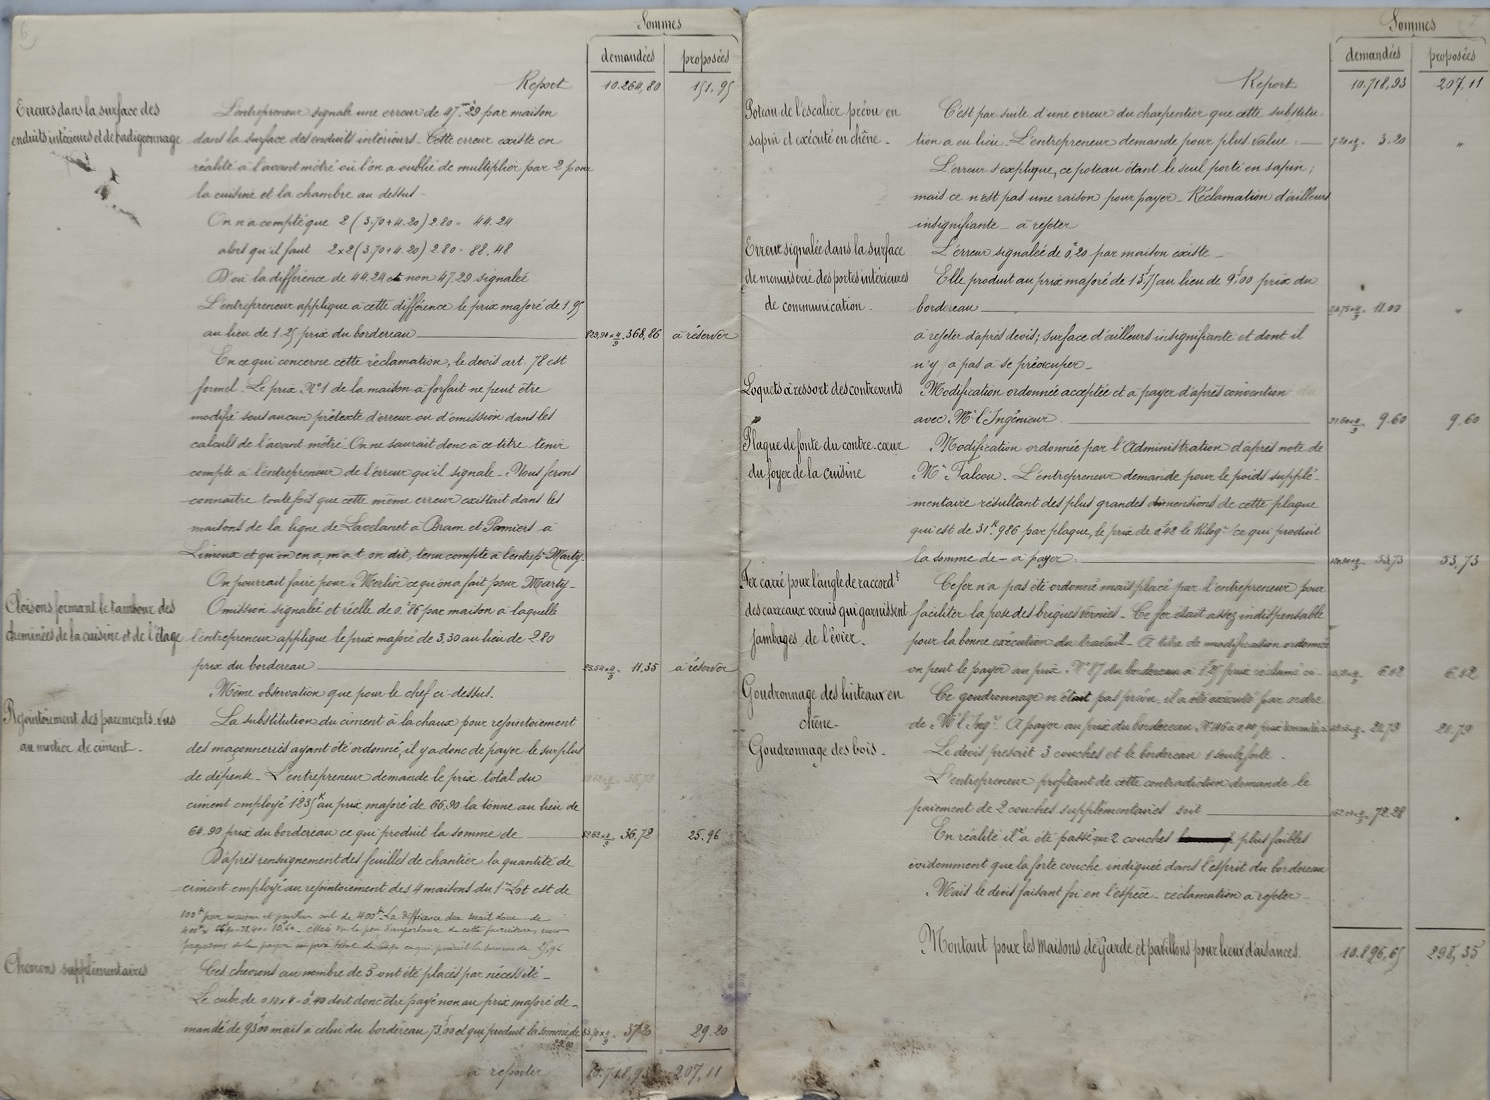 6
Sommes
demandées proposées
Report 10.264,80 151.95
Erreurs dans la surface des
enduits intérieurs et de badigeonnage
L'entrepreneur signale une erreur de 47.29 par maison
dans la surface des enduits intérieurs. Cette erreur existe en
réalité à l'avant métré où l'on a oublié de multiplier par 2 pour
la cuisine et la chambre au dessus.
On n'a compté que 2 (3.70+4.20) 2.80 = 44.24
alors qu'il faut 2x2 (3.70+4.20) 2.80 = 88.48
D'où la différence de 44.24 et non 47.29 signalée
L'entrepreneur applique à cette différence le prix majoré de 1.95
au lieu de 1.25 prix du bordereau 368,86 à réserver
En ce qui concerne cette réclamation, le devis art. 78 est
formel. Le prix N°1 de la maison à forfait ne peut être
modifié sous aucun prétexte d'erreur ou d'omission dans les
calculs de l'avant métré. On ne saurait donc à ce titre tenir
compte à l'entrepreneur de l'erreur qu'il signale. Nous ferons
connaître toutefois que cette même erreur existait dans les
maisons de la ligne de Lavelanet à Bram et Pamiers à
Limoux et qu'on en a, m'a-t-on dit, tenu compte à l'entrepr Marty.
On pourrait faire pour Merlier ce qu'on a fait pour Marty.
Cloisons formant le tambour des
cheminées de la cuisine et de l'étage
Omission signalée et réelle de 0.86 par maison à laquelle
l'entrepreneur applique le prix majoré de 3,30 au lieu de 2.80
prix du bordereau 11.35 à réserver
Même observation que pour le chef ci dessus.
Rejointoiement des parements vus
au mortier de ciment.
La substitution du ciment à la chaux pour rejointoiement
des maçonneries ayant été ordonné, il y a donc de payer le surplus
de dépense. L'entrepreneur demande le prix total du
ciment employé 1235 k au prix majoré de 66.90 la tonne au lieu de
64.90 prix du bordereau ce qui produit la somme de 36,72 25.96
D'après renseignement des feuilles de chantier la quantité de
ciment employé au rejointoiement des 4 maisons du 1er Lot est de
100 k par maison et pavillon soit de 400 k. La différence due serait donc de
Chevrons supplémentaires
Ces chevrons au nombre de 5 ont été placés par nécessité.
Le cube de 0,10x4 = 0,40 doit donc être payé non au prix majoré de-
mandé de 93.00 mais à celui du bordereau 73.00 et qui produit la somme de 37.20 29.20
29.20
à reporter 10.718,93 207,11
7
Sommes
demandées proposées
Report 10.718,93 207.11
Poteau de l'escalier prévu en
sapin et exécuté en chêne.
C'est par suite d'une erreur du charpentier que cette substitu-
tion a eu lieu. L'entrepreneur demande pour plus value 3.20 "
L'erreur s'explique, ce poteau étant le seul porté en sapin;
mais ce n'est pas une raison pour payer. Réclamation d'ailleurs
insignifiante à rejeter
Erreur signalée dans la surface
de menuiserie des portes intérieures
de communication.
L'erreur signalée de 0,20 par maison existe.
Elle produit au prix majoré de 13.75 au lieu de 9.00 prix du
bordereau 11.00 "
à rejeter d'après devis; surface d'ailleurs insignifiante et dont il
n'y a pas à se préoccuper.
Loquets à ressort des contrevents
Modification ordonnée acceptée et à payer d'après convention
avec Mr l'Ingénieur 9.60 9.60
Plaque de fonte du contre-cœur
du foyer de la cuisine
Modification ordonnée par l'Administration d'après note de
Mr Falcou. L'entrepreneur demande pour le poids supplé-
mentaire résultant des plus grandes dimensions de cette plaque
qui est de 31 k 986 par plaque, le prix de 0.42 le Kilog. ce qui produit
la somme de - à payer 53,73 53,73
Fer carré pour l'angle de raccordt
des carreaux vernis qui garnissent
jambages de l'évier.
Ce fer n'a pas été ordonné mais placé par l'entrepreneur pour
faciliter la pose des briques vernies. Ce fer étant assez indispensable
pour la bonne exécution du travail. A titre de modification ordonnée
on peut le payer au prix N°87 du bordereau 6.12 6.12
Goudronnage des linteaux en
chêne.
Ce goudronnage n'était pas prévu, il a été exécuté par ordre
de Mr l'Ingr. A payer au prix du bordereau 21.79 21.79
Goudronnage des bois.
Le devis prescrit 3 couches et le bordereau 1 seule forte.
L'entrepreneur profitant de cette contradiction demande le
paiement de 2 couches supplémentaires soit 72.28 "
En réalité il n'a été passé que 2 couches plus faibles
évidemment que la forte couche indiquée dans l'esprit du bordereau
Mais le devis faisant foi en l'espèce réclamation à rejeter.
Montant pour les maisons de Garde et pavillons pour lieux d'aisances 10.896,65 298,35